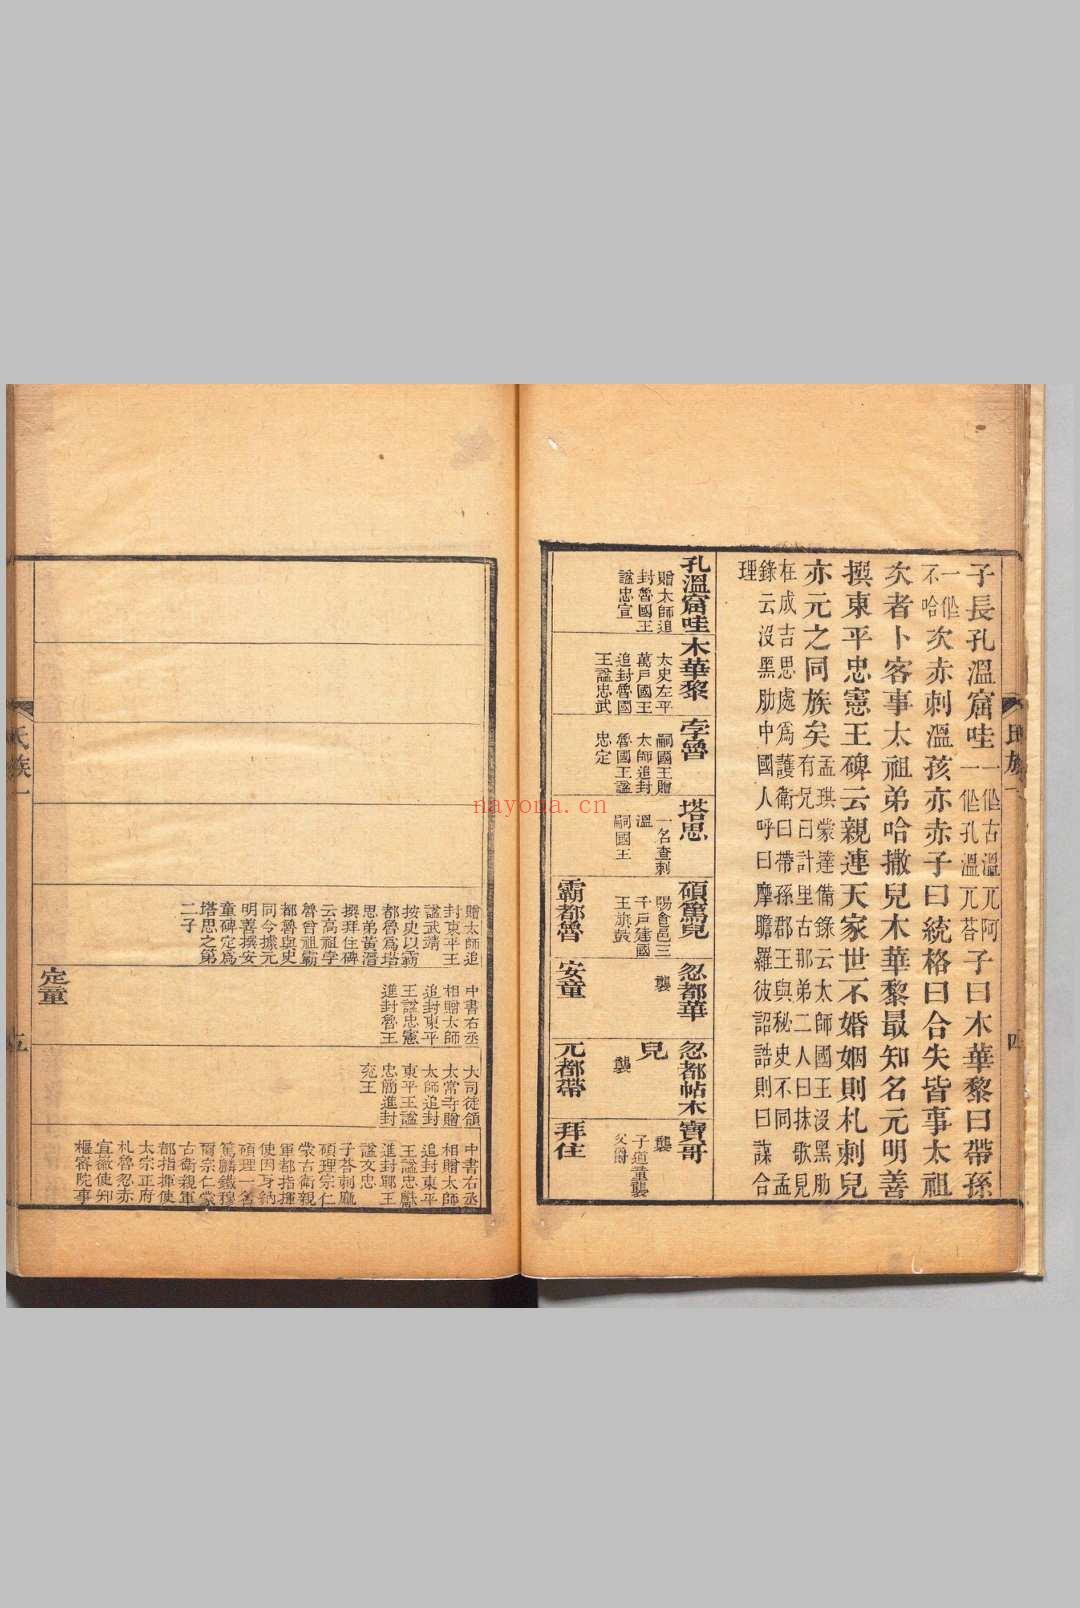 子長孔溫窟哇一作古溫兀阿一作孔溫兀荅子曰木華黎曰帶孫
一作不哈次赤刺溫孩亦赤子曰統格曰合失皆事太祖
次者卜客事太祖弟哈撒兒木華黎最知名元明善
撰東平忠憲王碑云親連天家世不婚姻則札剌兒
亦元之同族矣孟珙蒙達備錄云太師國王沒黑肋
有兄曰計里古那弟二人曰抹歌見
在成吉思處爲護衛曰帶孫郡王與秘史不同孟
錄云沒黑肋中國人呼曰摩瞻羅彼詔誥則曰謀合
理
孔溫窟哇
贈太師追
封魯國王
諡忠宣
木華黎
太史左平
萬戶國王
追封魯國
王諡忠武
孛魯
嗣國王贈
太師追封
魯國王諡
忠定
塔思
一名查剌
溫
嗣國王
碩篤兒
賜食邑三
千戶建國
王旗鼓
忽都華
襲
忽都帖木
兒
襲
寶哥
襲
子道童襲
父爵
霸都魯
安童
兀都帶
拜住
氏族一
四
贈太師追
封東平王
諡武靖
按史以霸
都魯爲塔
思弟黃溍
撰拜住碑
云高祖孛
魯曾祖霸
都魯與史
同今據元
明善撰安
童碑定爲
塔思之第
二子
中書右丞
相贈太師
追封東平
王諡忠憲
進封魯王
大司徒領
太常寺贈
太師追封
東平王諡
忠簡進封
兖王
中書右丞
相贈太師
追封東平
王諡忠獻
進封鄆王
諡文忠
子荅剌麻
碩理宗仁
蒙古衛親
軍都指揮
使因牙納
碩理一名
篤麟鐵穆
爾宗仁蒙
古衛親軍
都指揮使
太宗正府
札魯忽赤
宣徽使知
樞密院事
定童
氏族一
五
nayona.cn